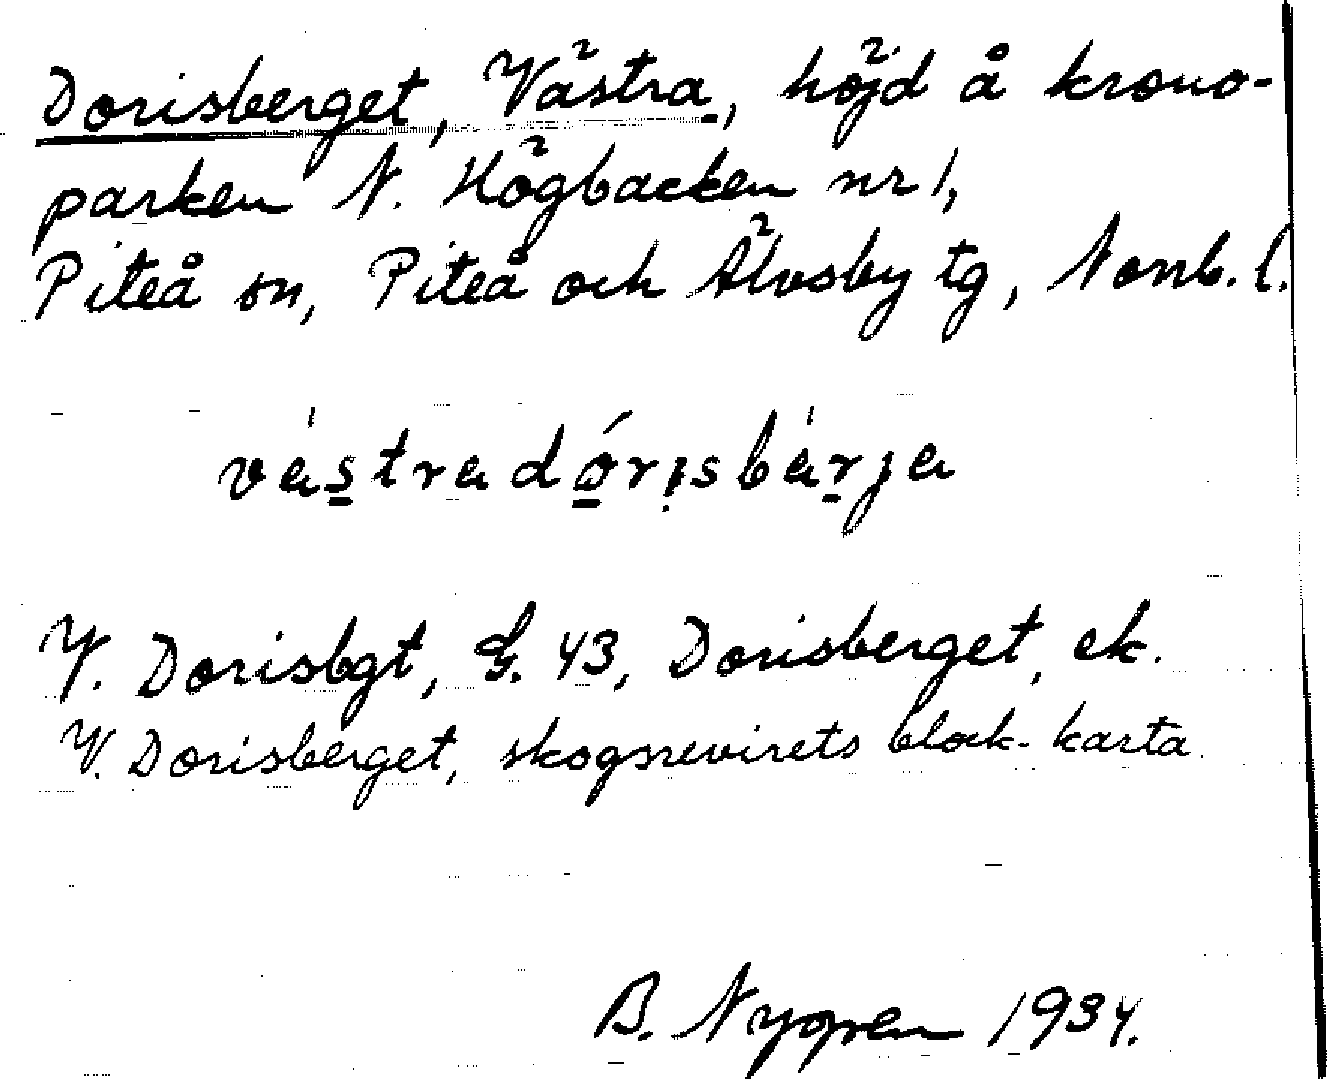 Dorisberget, Västra, höjd å krono-
parken N. Högbacken nr 1,
Piteå sn, Piteå och Älvsby tg, Norrb. l.
västradórisbärja
V. Dorisbgt, G. 43, Dorisberget, ek.
V. Dorisberget, skogsrevirets block-karta.
B. Nygren 1934.